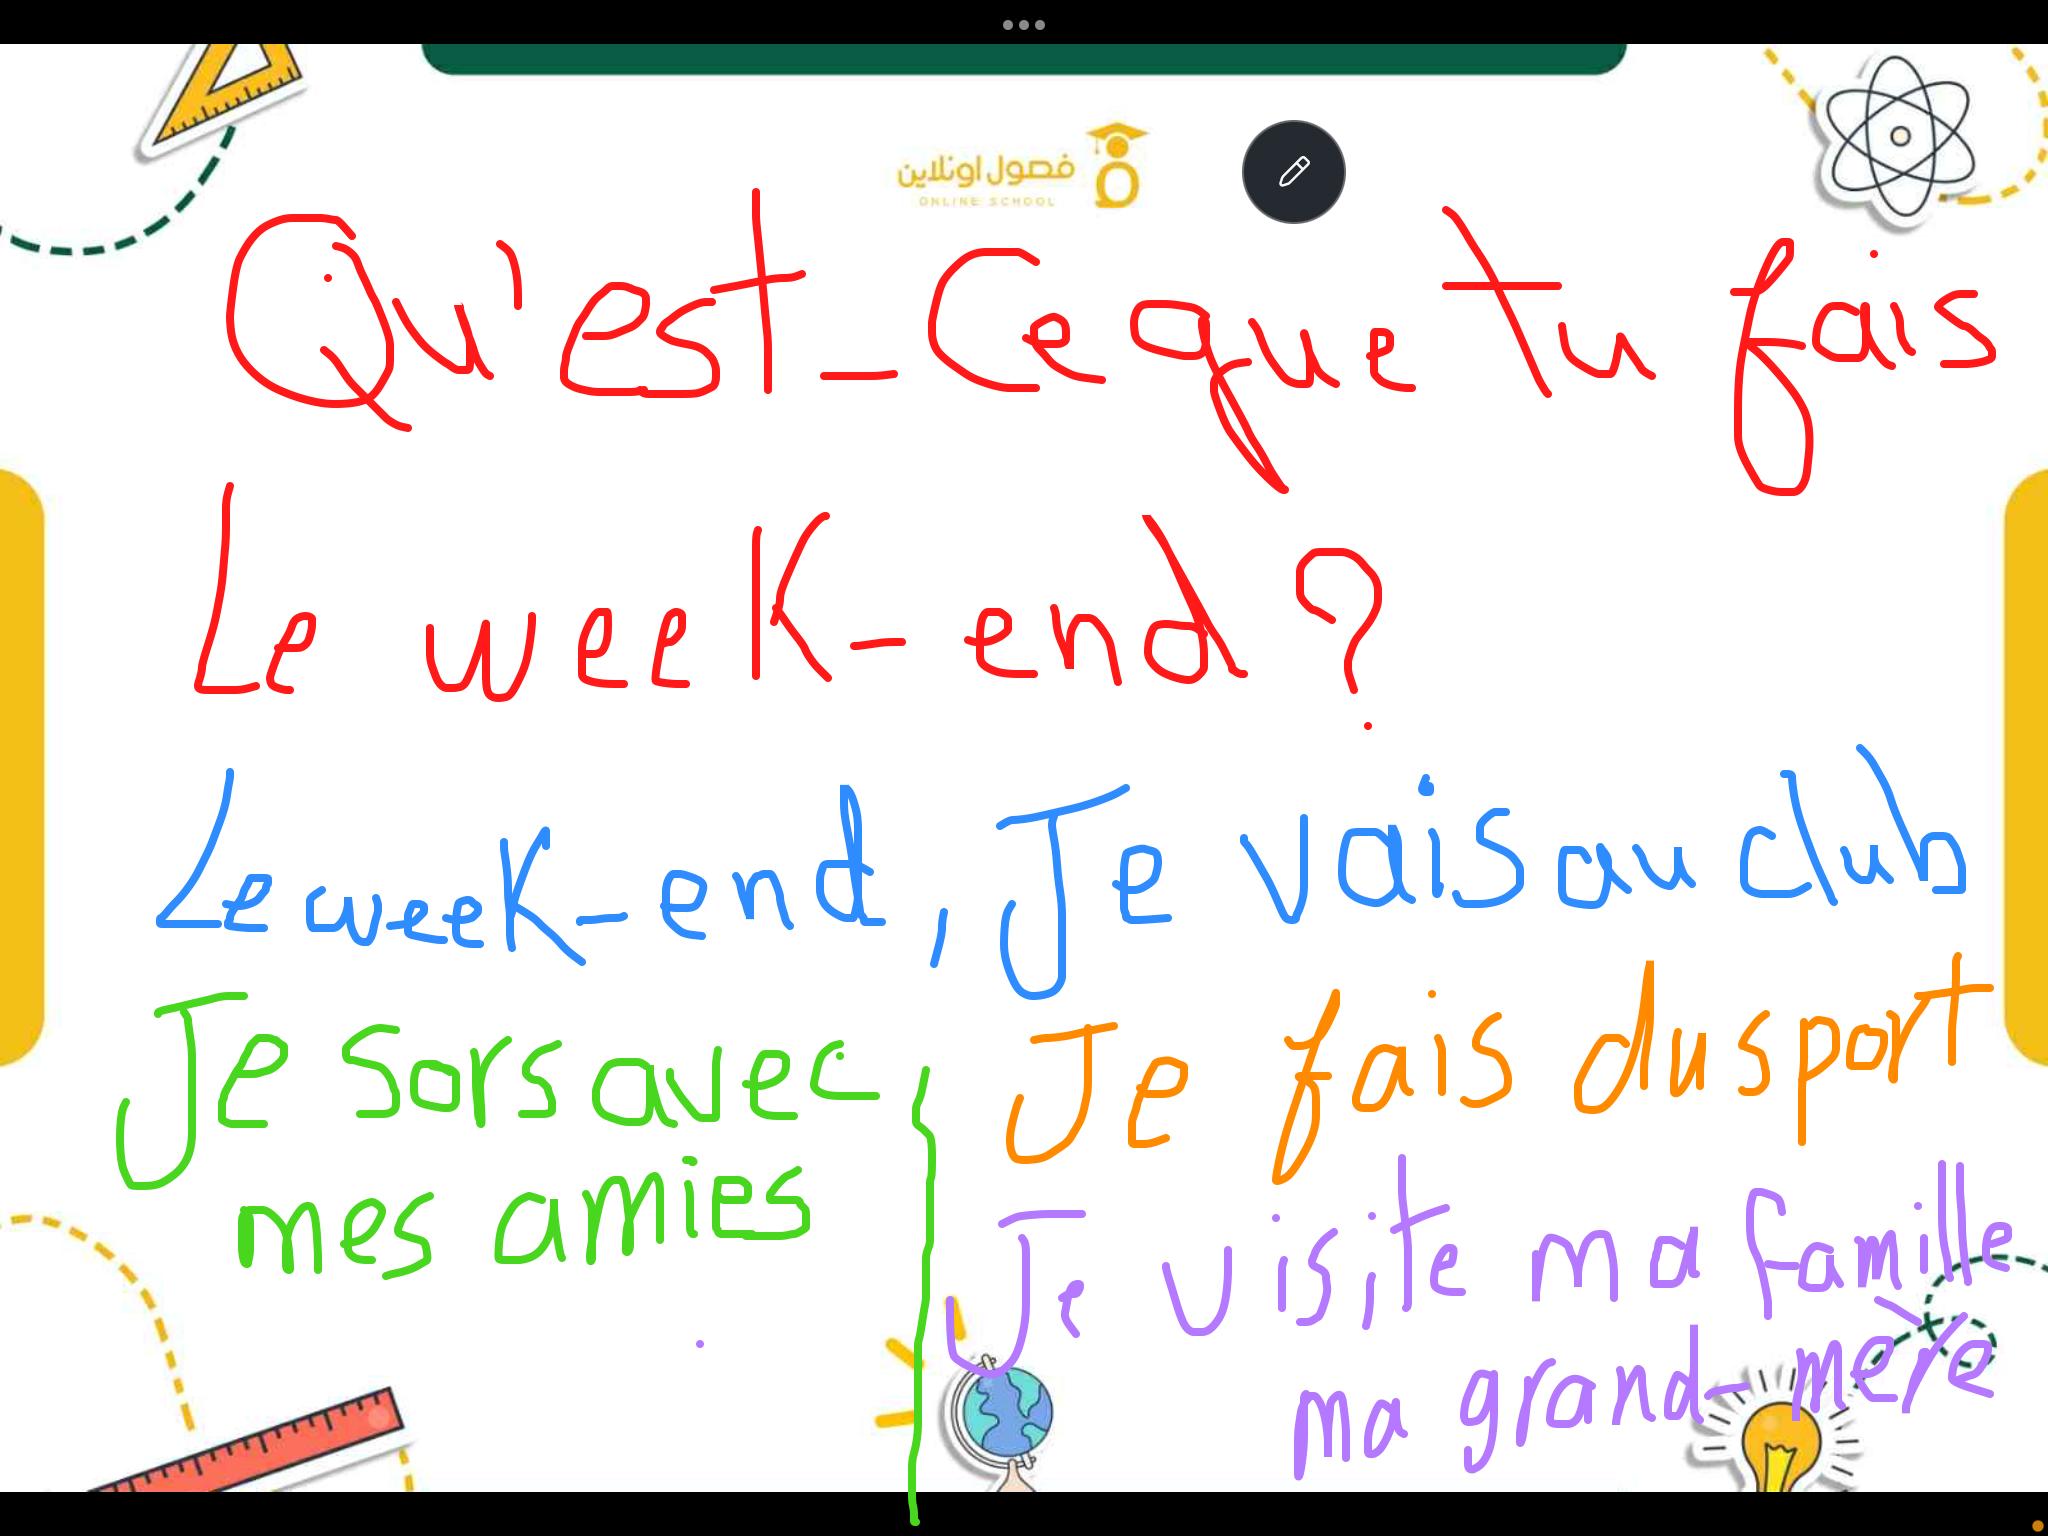 فصول اونلاين
ONLINE SCHOOL
Qu'est-ce que tu fais
Le week-end ?
Le week-end, Je vais au club
Je sors avec
mes amies
Je fais du sport
Je visite ma famille
ma grand-mère